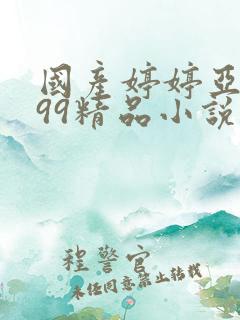 國產婷婷亞
99精品小說
程警官
未經同意禁止轉載